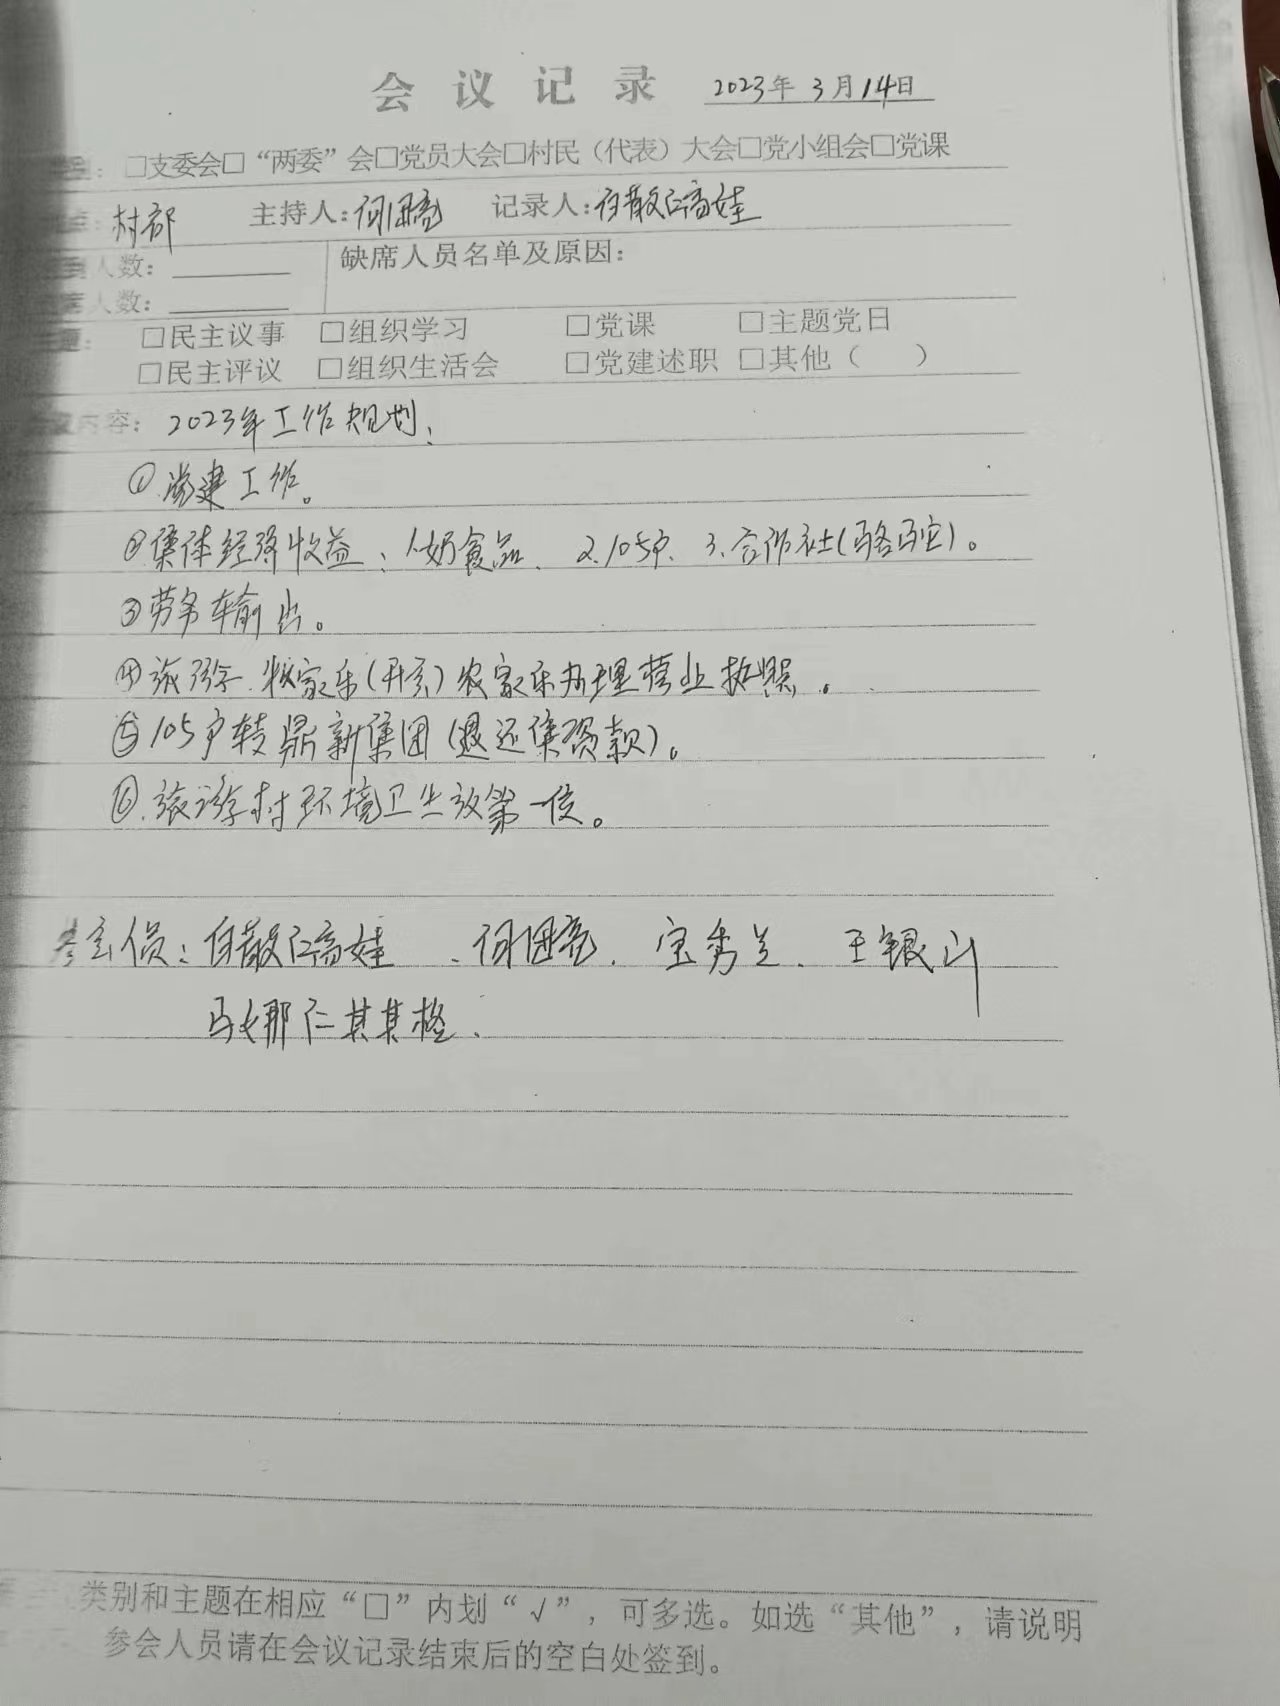 会议记录 2023年3月14日
：□支委会□“两委”会□党员大会□村民（代表）大会□党小组会□党课
村部 主持人：何国亮 记录人：白散仁高娃
人数： 缺席人员名单及原因：
人数：
□民主议事 □组织学习 □党课 □主题党日
□民主评议 □组织生活会 □党建述职 □其他（ ）
内容：2023年工作规划：
①党建工作。
②集体经济收益：1、奶食品、2.105户、3.合作社（骆驼）。
③劳务输出。
④旅游 牧家乐（开会）农家乐办理营业执照。
⑤105户转鼎新集团（退还集资款）。
⑥.旅游村环境卫生放第一位。
参会人员：白散仁高娃、何国亮、宝秀兰、王银山
乌娜仁其其格、
类别和主题在相应“□”内划“√”，可多选。如选“其他”，请说明
参会人员请在会议记录结束后的空白处签到。